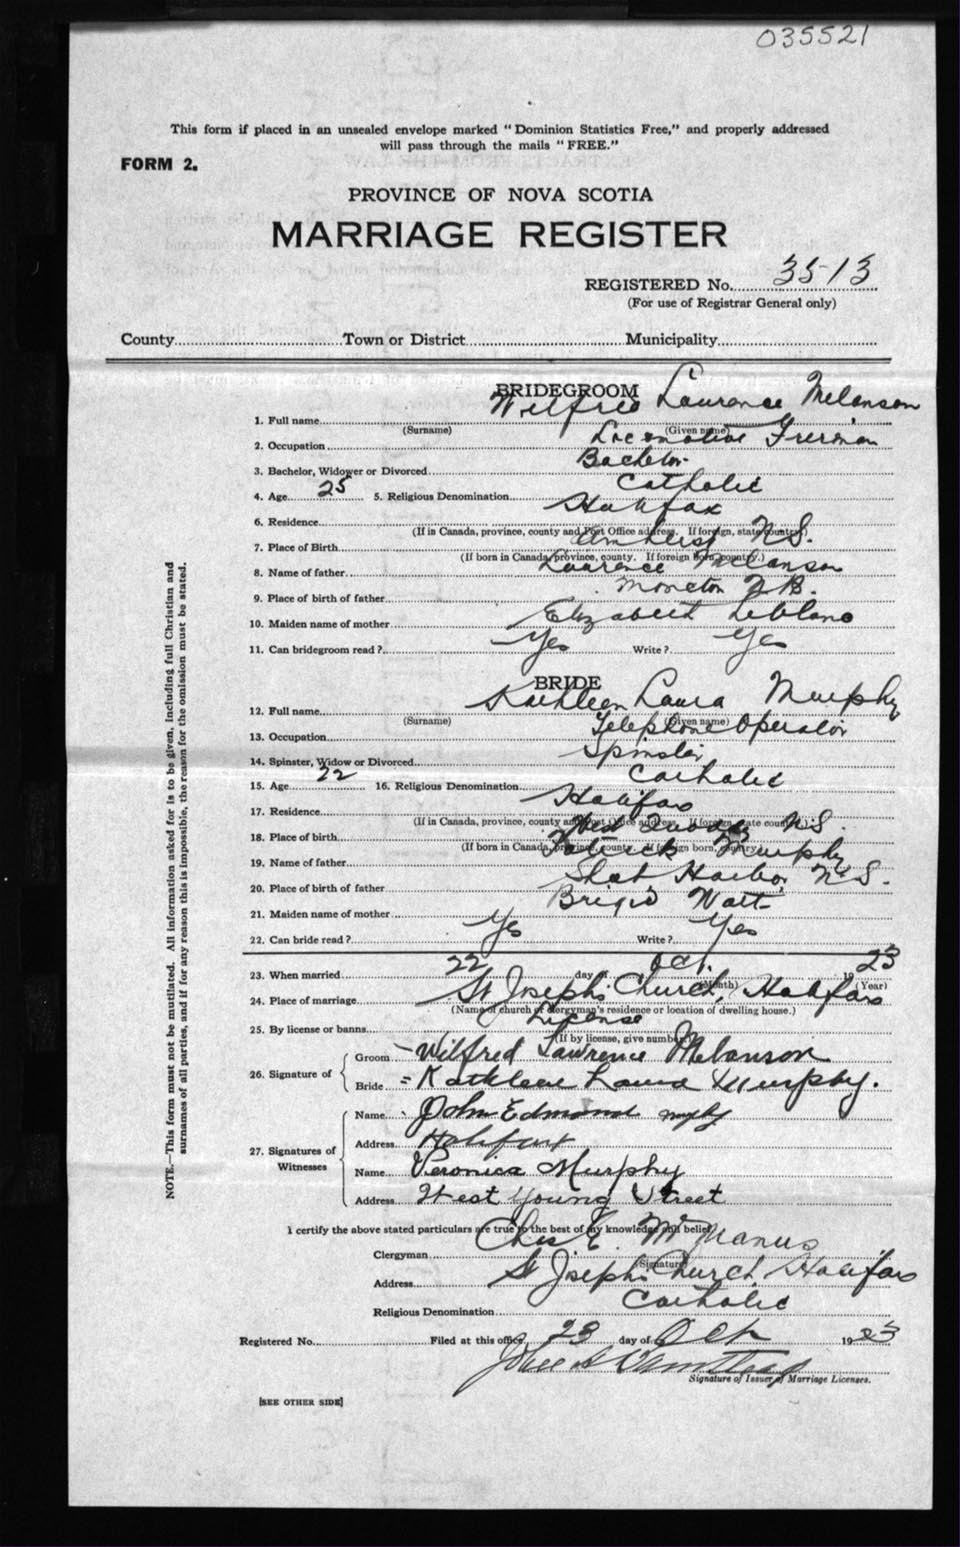 035521
This form if placed in an unsealed envelope marked "Dominion Statistics Free," and properly addressed
will pass through the mails "FREE."
FORM 2.
PROVINCE OF NOVA SCOTIA
MARRIAGE REGISTER
REGISTERED No. 3513
(For use of Registrar General only)
County Town or District Municipality
BRIDEGROOM
1. Full name Wilfred Laurence Melanson
(Surname) (Given name)
2. Occupation Locomotive Fireman
3. Bachelor, Widower or Divorced Bachelor
4. Age 25 5. Religious Denomination Catholic
6. Residence Halifax
(If in Canada, province, county and Post Office address. If foreign, state country.)
7. Place of Birth Amherst N.S.
(If born in Canada, province, county. If foreign born, country.)
8. Name of father Laurence Melanson
9. Place of birth of father Moncton N.B.
10. Maiden name of mother Elizabeth Leblanc
11. Can bridegroom read? Yes Write? Yes
BRIDE
12. Full name Kathleen Laura Murphy
(Surname) (Given name)
13. Occupation Telephone Operator
14. Spinster, Widow or Divorced Spinster
15. Age 22 16. Religious Denomination Catholic
17. Residence Halifax
(If in Canada, province, county and Post Office address. If foreign, state country.)
18. Place of birth West Quoddy N.S.
(If born in Canada, province, county. If foreign born, country.)
19. Name of father Patrick Murphy
20. Place of birth of father Harbor N.S.
21. Maiden name of mother Brigid
22. Can bride read? Yes Write? Yes
23. When married 22 day of Oct. 1923
(Month) (Year)
24. Place of marriage St Joseph's Church, Halifax
(Name of church or clergyman's residence or location of dwelling house.)
25. By license or banns License
(If by license, give number)
26. Signature of
Groom Wilfred Lawrence Melanson
Bride Kathleen Laura Murphy.
27. Signatures of Witnesses
Name John Edmond
Address Halifax
Name Veronica Murphy
Address West Young Street
I certify the above stated particulars are true to the best of my knowledge and belief.
Clergyman Chas E. McManus
(Signature)
Address St Joseph's Church Halifax
Religious Denomination Catholic
Registered No. Filed at this office, 23 day of Oct 1923
Signature of Issuer of Marriage Licenses.
[SEE OTHER SIDE]
NOTE.—This form must not be mutilated. All information asked for is to be given, including full Christian and
surnames of all parties, and if for any reason this is impossible, the reason for the omission must be stated.